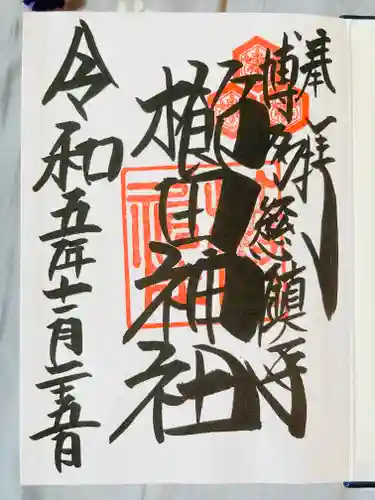 奉拝
博多總鎮守
櫛田神社
令和五年十一月二十五日